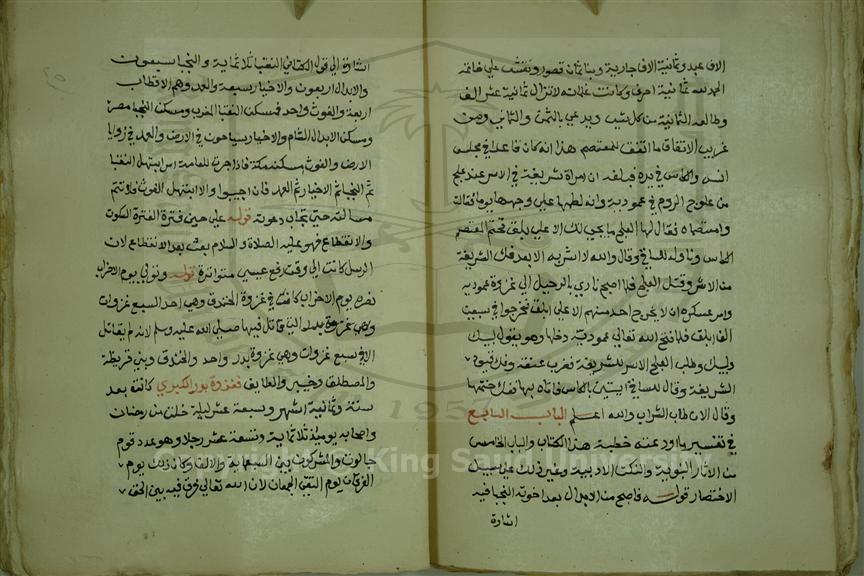 الاف عبد وثمانية الاف جارية وبنا ثمان قصور ونقش علي خاتمه
الحمد لله ثمانية احرف وكانت غلمانه الاتراك ثمانية عشر الف
وطالعه الثانية من كل شي ويدعي بالثمن والثماني ومن
غريب الاتفاق ما اتفق للمعتصم هذا انه كان قاعدا في مجلس
انس والكاس في يده فبلغه ان امراة شريفة في الاسر عند علج
من علوج الروم في عمورية وانه لطمها علي وجهها يوما فقالت
وامعتصماه فقال لها العلج ما يجي لك الا علي ابلق فختم المعتصم
الكاس وناوله للساقي وقال والله لا اشربه الا بعد فك الشريفة
من الاسر وقتل العلج فلما اصبح نادي بالرحيل الي غزوة عمورية
وامر عسكره ان لا يخرج احد منهم الا علي ابلق فخرجوا في سبعين
الف ابلق فلما فتح الله تعالي عمورية دخلها وهو يقول لبيك
لبيك وطلب العلج الاسر للشريفة فضرب عنقه وفك قيود
الشريفة وقال للساقي ايتيني بالكاس فاتاه بها ففك ختمها
وقال الان طاب الشراب والله اعلم الباب السابع
في تفسير ما اودعته خطبة هذا الكتاب والباب الخامس
من الاثار النبوية والنكت الادبية وغير ذلك علي سبيل
الاختصار قوله فاصبح من الابدال بعد اخوته النجبا فيه
اشارة
اشارة الي قول الكتاني النقبا ثلاثماية والنجبا سبعون
والابدال اربعون والاخيار سبعة والعمد وهم الاقطاب
اربعة والغوث واحد فمسكن النقبا الغرب ومسكن النجبا مصر
ومسكن الابدال الشام والاخيار سياحون في الارض والعمد في زوايا
الارض والغوث مسكنه مكة فاذا جرت للعامة امر ابتهل النقبا
ثم النجبا ثم الاخيار ثم العمد فان اجيبوا والا ابتهل الغوث فلا تتم
مسالته حتي تجاب دعوته قوله علي حين فترة الفترة السكوت
والانقطاع فهو عليه الصلاة والسلام بعث بعد الانقطاع لان
الرسل كانت الي وقت رفع عيسي متواترة قوله ونوبي يوم الاحزاب
نصره يوم الاحزاب كانت في غزوة الخندق وهي احد السبع غزوات
وهي غزوة بدر التي قاتل فيها صلي الله عليه وسلم لانه لم يقاتل
الا في سبع غزوات وهي غزوة بدر واحد والخندق وبني قريظة
والمصطلق وخيبر والطايف فغزوة بدر الكبري كانت بعد
سنة وثمانية اشهر وسبعة عشر ليلة خلت من رمضان
واصحابه يوميذ ثلاثماية وتسعة عشر رجلا وهو عدد قوم
جالوت والمشركون بين السبعماية والالف وكان ذلك يوم
الفرقان يوم التقي الجمعان لان الله تعالي فرق فيه بين الحق
Copyright © King Saud University
1957